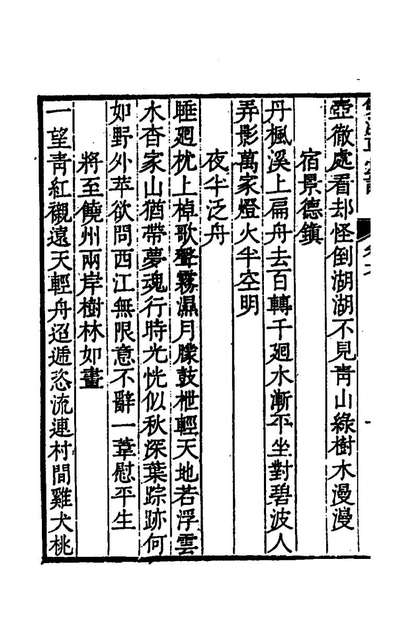 壺徹處看却怪倒湖湖不見青山綠樹木漫漫
宿景德鎮
丹楓溪上扁舟去百轉千廻水漸平坐對碧波人
弄影萬家燈火半空明
夜半泛舟
睡廻枕上棹歌聲霧濕月朦鼓枻輕天地若浮雲
水杳家山猶帶夢魂行時光恍似秋深葉踪跡何
如野外萍欲問西江無限意不辭一葦慰平生
將至饒州兩岸樹林如畫
一望青紅襯遠天輕舟迢遞恣流連村間雞犬桃